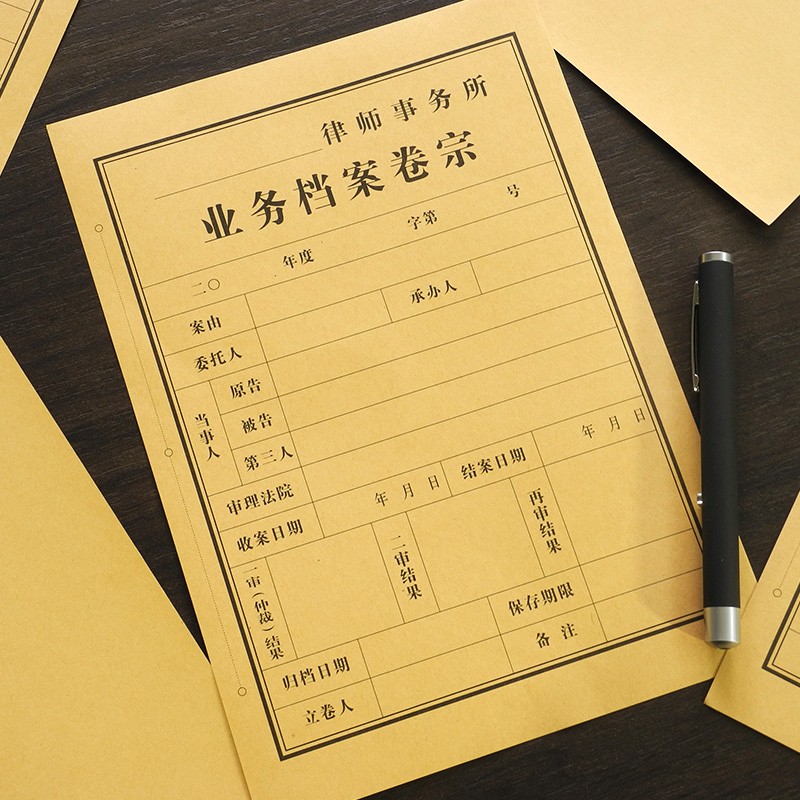 律师事务所
业务档案卷宗
二〇 年度 字第 号
案由 承办人
委托人
当事人
原告
被告
第三人
审理法院
收案日期 年 月 日 结案日期 年 月 日
一审(仲裁)结果 二审结果 再审结果
归档日期 保存期限
立卷人 备注